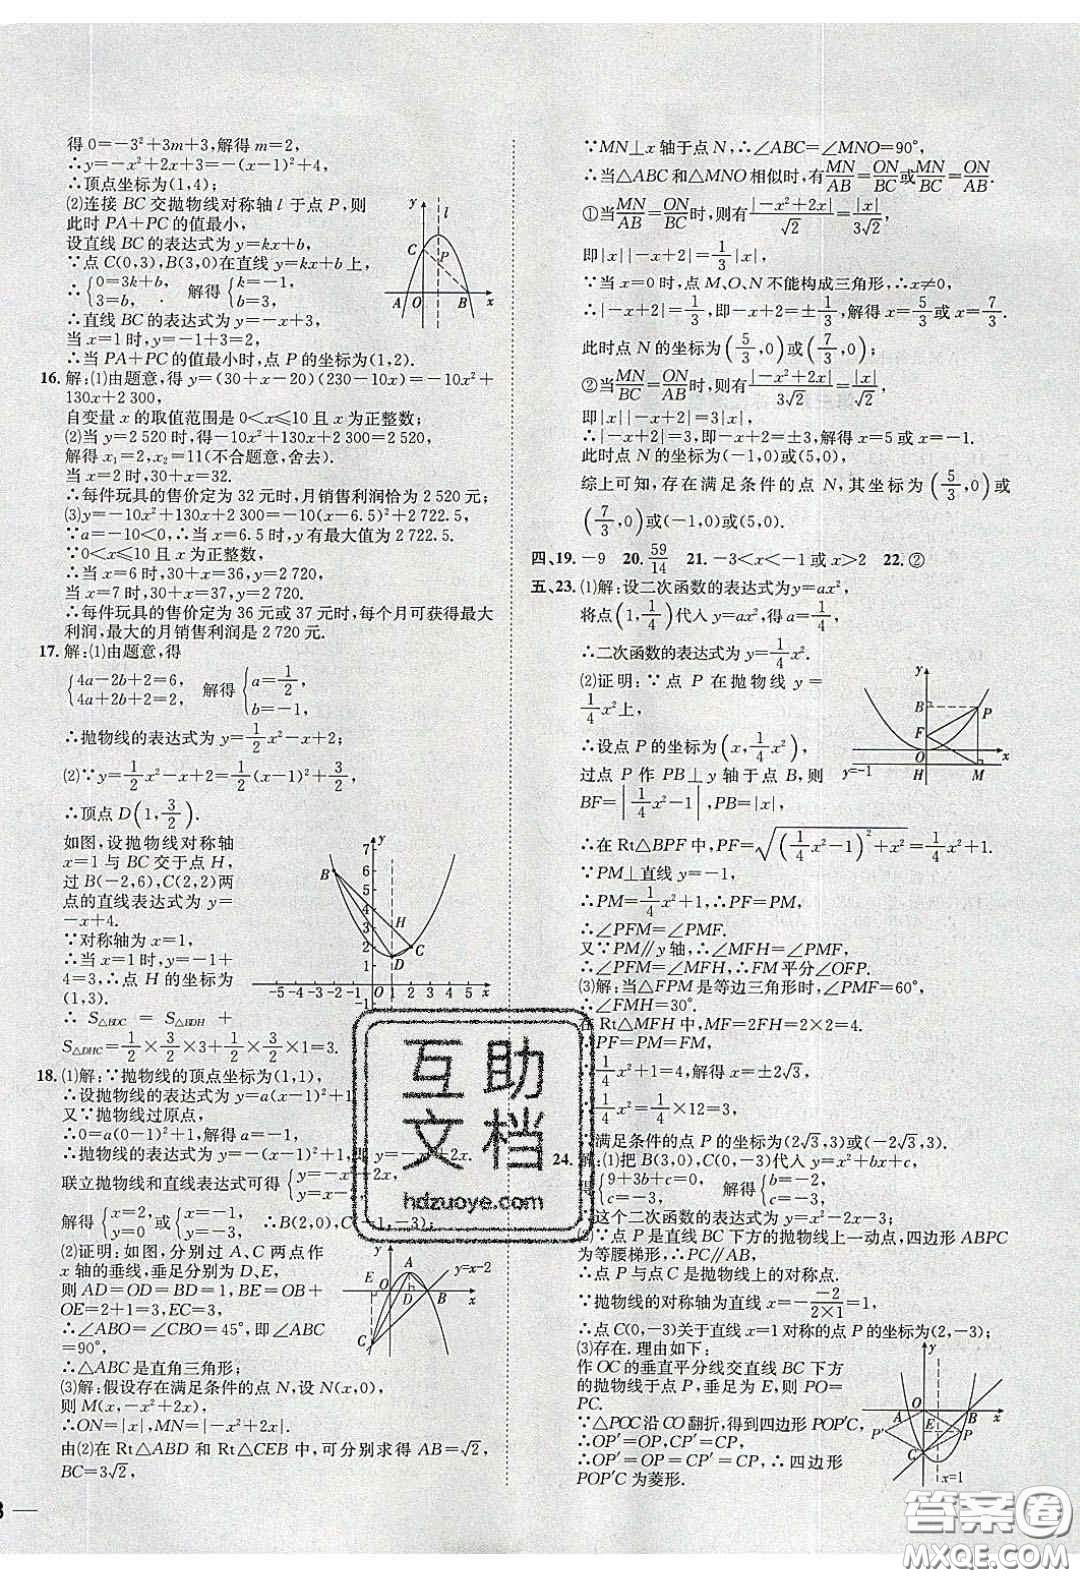 得0=-3²+3m+3,解得m=2,
∴y=-x²+2x+3=-(x-1)²+4,
∴顶点坐标为(1,4);
(2)连接BC交抛物线对称轴l于点P,则
此时PA+PC的值最小,
设直线BC的表达式为y=kx+b,
∵点C(0,3),B(3,0)在直线y=kx+b上,
∴{0=3k+b, 3=b, 解得{k=-1, b=3,
∴直线BC的表达式为y=-x+3,
当x=1时,y=-1+3=2,
∴当PA+PC的值最小时,点P的坐标为(1,2).
y l C P A O B x
16. 解:(1)由题意,得y=(30+x-20)(230-10x)=-10x²+
130x+2 300,
自变量x的取值范围是0<x≤10且x为正整数;
(2)当y=2 520时,得-10x²+130x+2 300=2 520,
解得x₁=2,x₂=11(不合题意,舍去).
当x=2时,30+x=32.
∴每件玩具的售价定为32元时,月销售利润恰为2 520元;
(3)y=-10x²+130x+2 300=-10(x-6.5)²+2 722.5,
∵a=-10<0,∴当x=6.5时,y有最大值为2 722.5.
∵0<x≤10且x为正整数,
∴当x=6时,30+x=36,y=2 720,
当x=7时,30+x=37,y=2 720,
∴每件玩具的售价定为36元或37元时,每个月可获得最大
利润,最大的月销售利润是2 720元.
17. 解:(1)由题意,得
{4a-2b+2=6, 4a+2b+2=2, 解得{a=1/2, b=-1,
∴抛物线的表达式为y=1/2x²-x+2;
(2)∵y=1/2x²-x+2=1/2(x-1)²+3/2,
∴顶点D(1,3/2).
如图,设抛物线对称轴
x=1与BC交于点H,
过B(-2,6),C(2,2)两
点的直线表达式为y=
-x+4,
∵对称轴为x=1,
∴当x=1时,y=-1+
4=3,∴点H的坐标为
(1,3).
∴S△BDC=S△BDH+
S△DHC=1/2×3/2×3+1/2×3/2×1=3.
y 7 6 5 4 3 2 1 B H C D
-5 -4 -3 -2 -1 O 1 2 3 4 5 x
18. (1)解:∵抛物线的顶点坐标为(1,1),
∴设抛物线的表达式为y=a(x-1)²+1
又∵抛物线过原点,
∴0=a(0-1)²+1,解得a=-1,
∴抛物线的表达式为y=-(x-1)²+1,即y=-x²+2x.
联立抛物线和直线表达式可得{y=-x²+2x, y=x-2,
解得{x=2, y=0 或{x=-1, y=-3, ∴B(2,0),C(-1,-3);
(2)证明:如图,分别过A、C两点作
x轴的垂线,垂足分别为D、E,
则AD=OD=BD=1,BE=OB+
OE=2+1=3,EC=3,
∴∠ABO=∠CBO=45°,即∠ABC
=90°,
∴△ABC是直角三角形;
(3)解:假设存在满足条件的点N,设N(x,0),
则M(x,-x²+2x),
∴ON=|x|,MN=|-x²+2x|,
由(2)在Rt△ABD和Rt△CEB中,可分别求得AB=√2,
BC=3√2,
y y=x-2 A E O D B x C
∵MN⊥x轴于点N,∴∠ABC=∠MNO=90°,
∴当△ABC和△MNO相似时,有MN/AB=ON/BC或MN/BC=ON/AB.
①当MN/AB=ON/BC时,则有|-x²+2x|/√2=|x|/3√2,
即|x||-x+2|=1/3|x|,
∵当x=0时,点M、O、N不能构成三角形,∴x≠0,
∴|-x+2|=1/3,即-x+2=±1/3,解得x=5/3或x=7/3.
此时点N的坐标为(5/3,0)或(7/3,0);
②当MN/BC=ON/AB时,则有|-x²+2x|/3√2=|x|/√2,
即|x||-x+2|=3|x|,
∴|-x+2|=3,即-x+2=±3,解得x=5或x=-1.
此时点N的坐标为(-1,0)或(5,0),
综上可知,存在满足条件的点N,其坐标为(5/3,0)或
(7/3,0)或(-1,0)或(5,0).
四、19. -9 20. 59/14 21. -3<x<-1或x>2 22. ②
五、23. (1)解:设二次函数的表达式为y=ax²,
将点(1,1/4)代入y=ax²,得a=1/4,
∴二次函数的表达式为y=1/4x².
(2)证明:∵点P在抛物线y=
1/4x²上,
∴设点P的坐标为(x,1/4x²),
过点P作PB⊥y轴于点B,则
BF=|1/4x²-1|,PB=|x|,
∴在Rt△BPF中,PF=√((1/4x²-1)²+x²)=1/4x²+1.
∵PM⊥直线y=-1,
∴PM=1/4x²+1,∴PF=PM,
∴∠PFM=∠PMF.
又∵PM∥y轴,∴∠MFH=∠PMF,
∴∠PFM=∠MFH,∴FM平分∠OFP.
(3)解:当△FPM是等边三角形时,∠PMF=60°,
∴∠FMH=30°.
在Rt△MFH中,MF=2FH=2×2=4.
∵PF=PM=FM,
∴1/4x²+1=4,解得x=±2√3,
∴1/4x²=1/4×12=3,
∴满足条件的点P的坐标为(2√3,3)或(-2√3,3).
y B P F O x y=-1 H M
24. 解:(1)把B(3,0),C(0,-3)代入y=x²+bx+c,
得{9+3b+c=0, c=-3, 解得{b=-2, c=-3,
∴这个二次函数的表达式为y=x²-2x-3;
(2)∵点P是直线BC下方的抛物线上一动点,四边形ABPC
为等腰梯形,∴PC∥AB,
∴点P与点C是抛物线上的对称点.
∵抛物线的对称轴为直线x=-(-2)/(2×1)=1,
∴点C(0,-3)关于直线x=1对称的点P的坐标为(2,-3);
(3)存在.理由如下:
作OC的垂直平分线交直线BC下方
的抛物线于点P,垂足为E,则PO=
PC.
∵△POC沿CO翻折,得到四边形POP'C,
∴OP'=OP,CP'=CP,
∴OP'=OP=CP'=CP,∴四边形
POP'C为菱形.
y A O B x P' E P C x=1
互助
文档
hdzuoye.com
答案圈
MXQE.COM